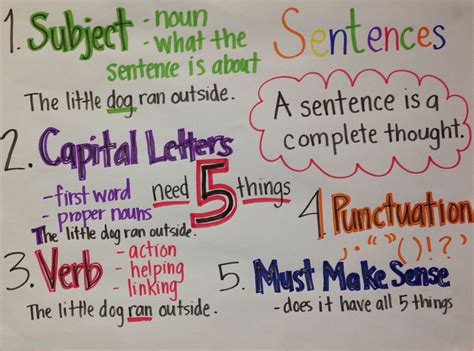 Sentences
A sentence is a
complete thought.
need 5 things
1. Subject - noun
- what the
sentence is about
The little dog ran outside.
2. Capital Letters
- first word
- proper nouns
The little dog ran outside.
3. Verb - action
- helping
- linking
The little dog ran outside.
4. Punctuation
, . “ ” ( ) ! ?
5. Must Make Sense
- does it have all 5 things